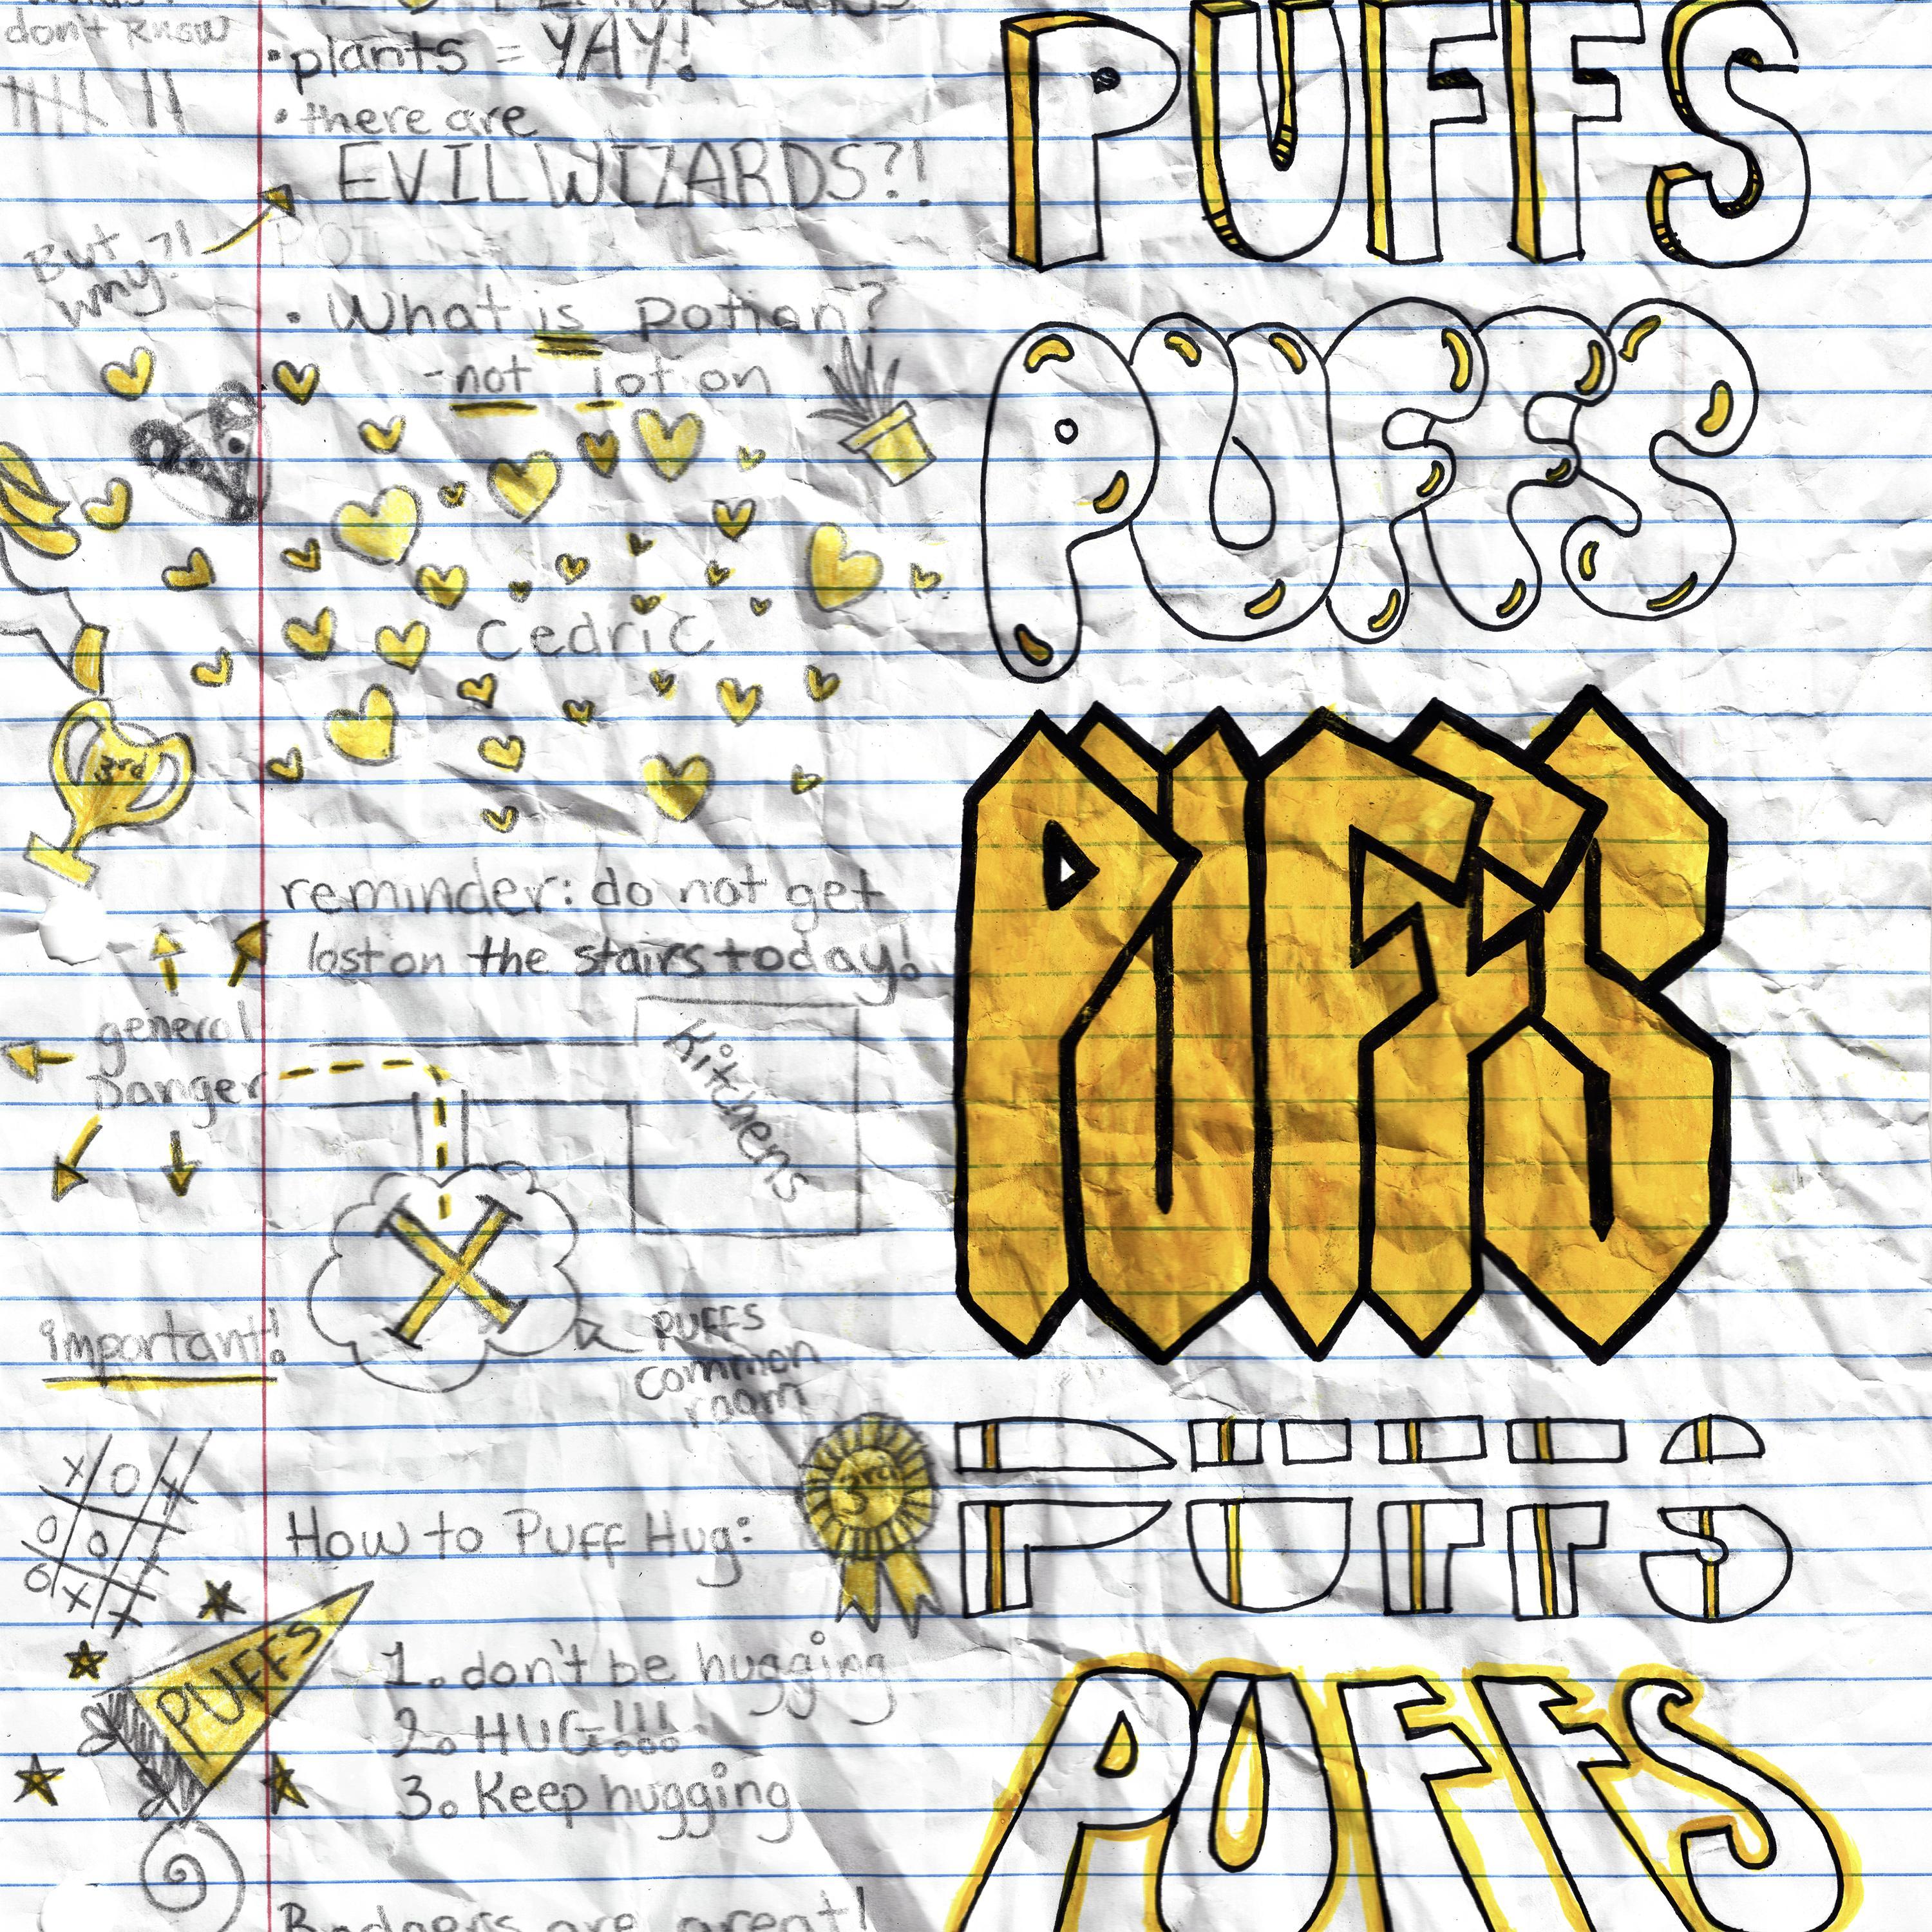 don't know
• plants = YAY!
• there are
EVIL WIZARDS?!
But
why?!
• What is potion?
- not lotion
Cedric
3rd
reminder: do not get
lost on the stairs today!
general
Danger
Kitchens
X
important!
PUFFS
common
room
X O X
O O
O X X
3rd
How to Puff Hug:
PUFFS
1. don't be hugging
2. HUG!!!
3. Keep hugging
Badgers are great!
PUFFS
PUFFS
PUFFS
PUFFS
PUFFS